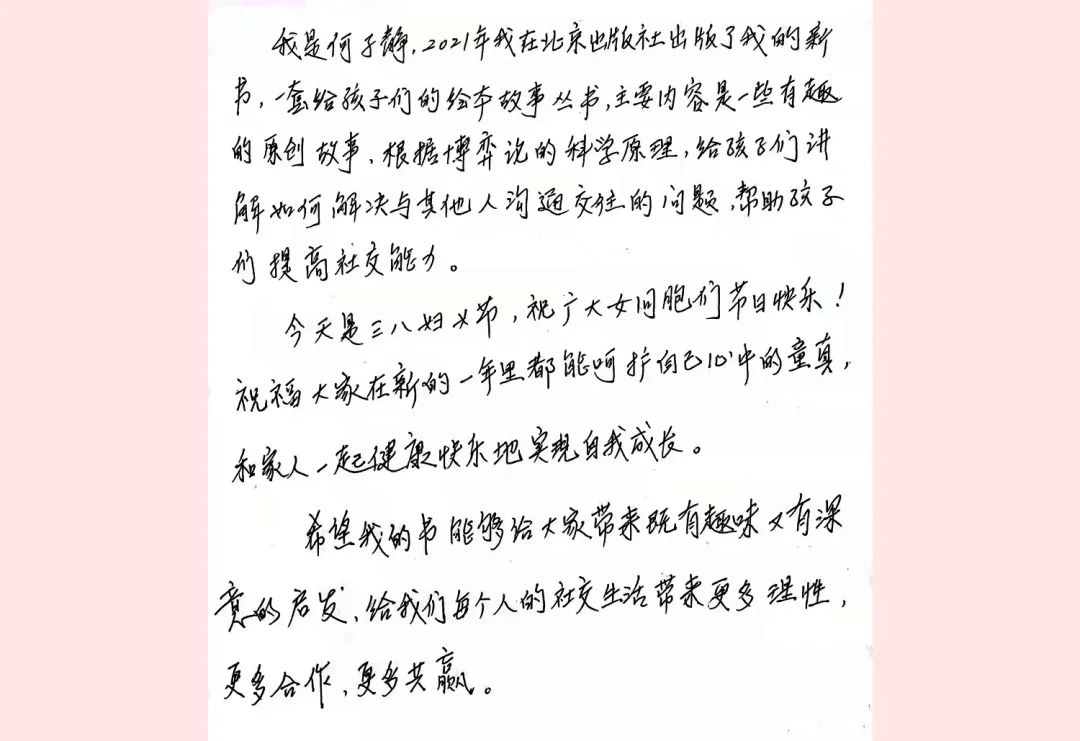 我是何子静，2021年我在北京出版社出版了我的新
书，一套给孩子们的绘本故事丛书，主要内容是一些有趣
的原创故事，根据博弈论的科学原理，给孩子们讲
解如何解决与其他人沟通交往的问题，帮助孩子
们提高社交能力。
今天是三八妇女节，祝广大女同胞们节日快乐！
祝福大家在新的一年里都能呵护自己心中的童真，
和家人一起健康快乐地实现自我成长。
希望我的书能够给大家带来既有趣味又有深
意的启发，给我们每个人的社交生活带来更多理性，
更多合作，更多共赢。